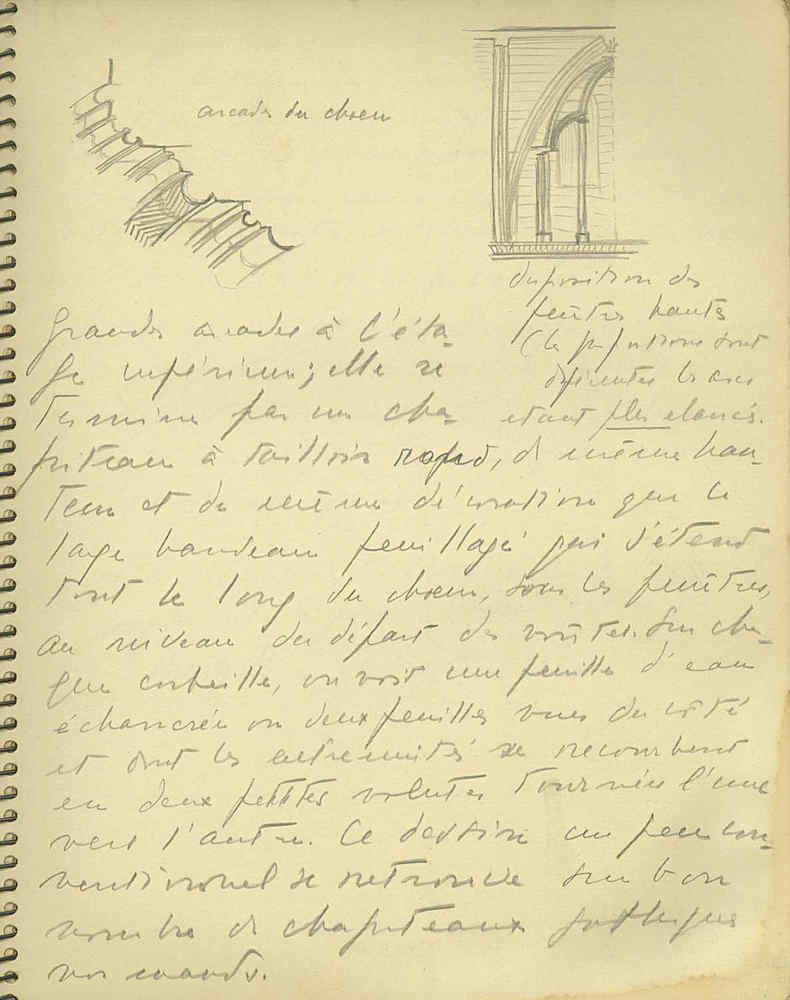 arcades du chœur
disposition des
fenêtres hautes
(les proportions sont
différentes les arcs
étant plus élancés.
grandes arcades à l'éta-
ge inférieur; elle se
termine par un cha-
piteau à tailloir rond, de même hau-
teur et de même décoration que le
large bandeau feuillagé qui s'étend
tout le long du chœur, sous les fenêtres,
au niveau du départ des voûtes. Sur cha-
que corbeille, on voit une feuille d'eau
échancrée ou deux feuilles vues de côté
et dont les extrémités se recourbent
en deux petites volutes tournées l'une
vers l'autre. Ce dessin un peu con-
ventionnel se retrouve sur bon
nombre de chapiteaux gothiques
normands.